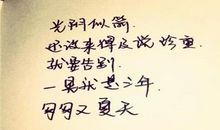 光阴似箭
还没来得及说珍重
就要告别
一晃就是三年
匆匆又夏天